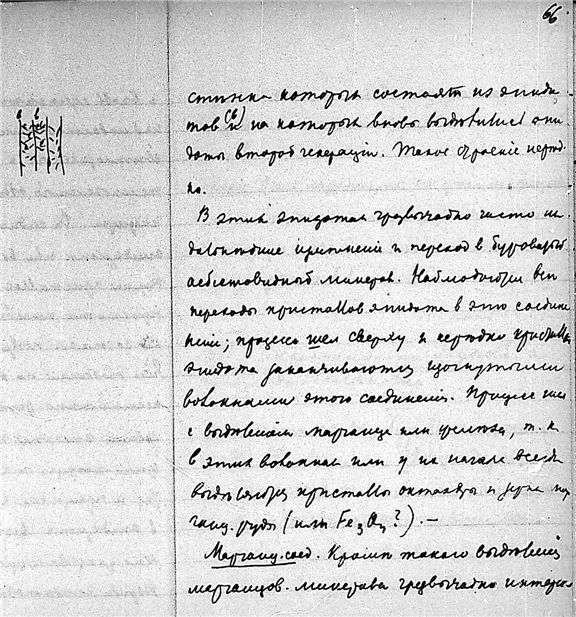 66
стенки которых состоят из эпидо
тов (b) и на которых вновь выделились эпи
доты второй генерации. Такое строение неред
ко.
В этих эпидотах чрезвычайно часто на
изменение и переход в буроватый
асбестовидный минерал. Наблюдаются все
переходы кристаллов эпидота в это соедине
ние; процесс шел сверху и нередко кристаллы
эпидота заканчиваются изогнутыми
волокнами этого соединения. Процесс шел
с выделением марганца или железа, т. к.
в этих волокнах или у их начала всегда
выделяются кристаллы октаэдры и зерна мар
ганц. руды (или Fe3O4?). —
Марганц. соед. Кроме такого выделения
марганцов. минерала чрезвычайно интерес
b b